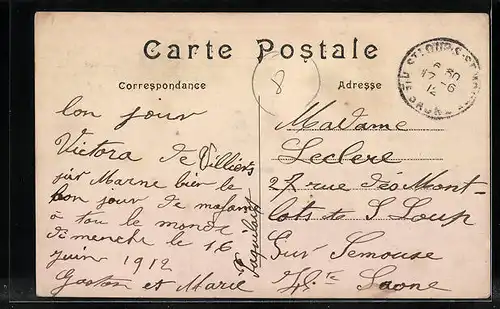 Carte Postale
Correspondance
Adresse
8
bon jour
Victora de Villiers
sur Marne bien le
bon jour de ma fam
à tou le monde
dimenche le 16
juin 1912
Gaston et Marie
Madame
Leclerc
27 rue des Mont-
lots de S Loup
Sur Semouse
Hte Saone
6 30
17-6
12